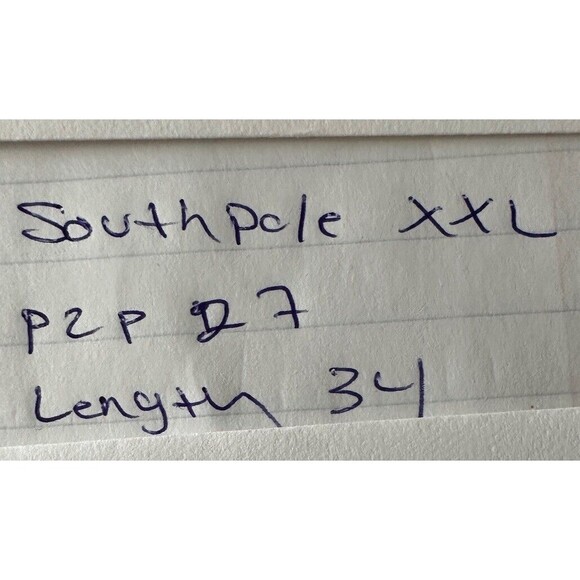 Southpole XXL
P2P 27
Length 34